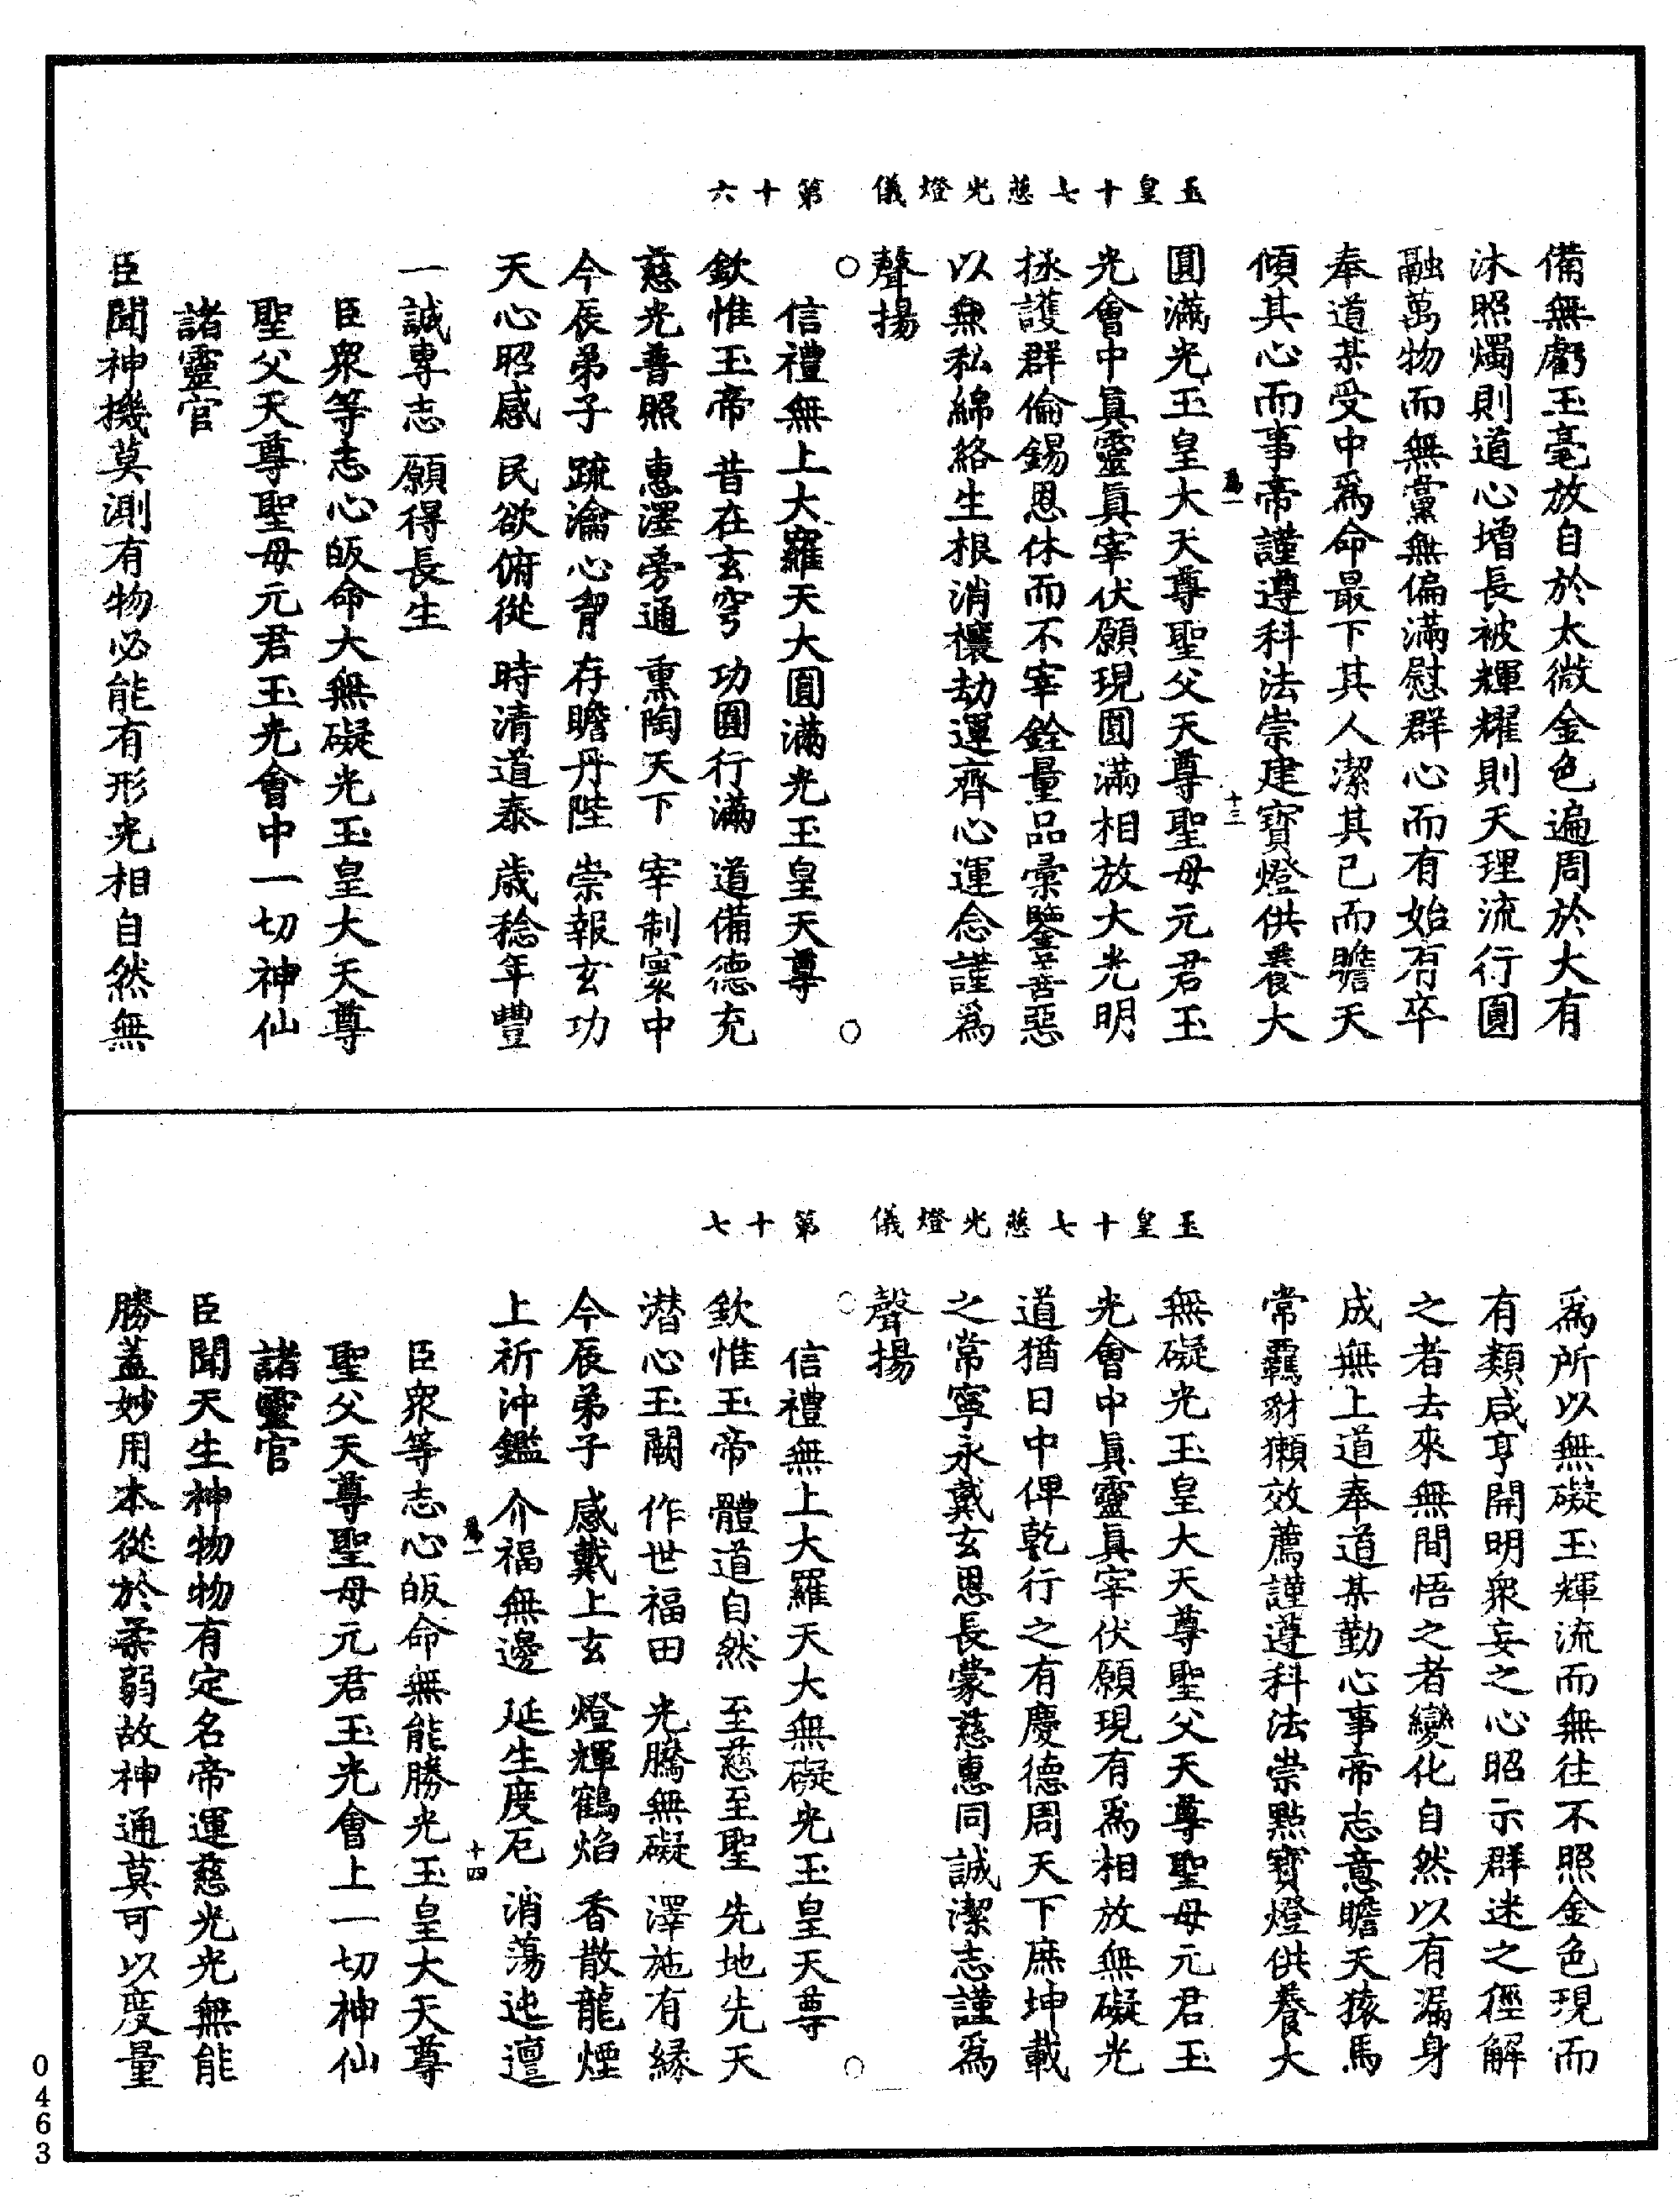 玉皇十七慈光燈儀　第十六
備無虧玉毫放自於太微金色遍周於大有
沐照燭則道心增長被輝耀則天理流行圓
融萬物而無黨無偏滿慰群心而有始有卒
奉道某受中爲命最下其人潔其已而瞻天
傾其心而事帝謹遵科法崇建寶燈供養大
爲一　十三
圓滿光玉皇大天尊聖父天尊聖母元君玉
光會中眞靈眞宰伏願現圓滿相放大光明
拯護群倫錫恩休而不宰銓量品彙鑒善惡
以無私綿絡生根消禳劫運齊心運念謹爲
聲揚
○　○
信禮無上大羅天大圓滿光玉皇天尊
欽惟玉帝　昔在玄穹　功圓行滿　道備德充
慈光普照　惠澤旁通　熏陶天下　宰制寰中
今辰弟子　疏瀹心膂　存瞻丹陛　崇報玄功
天心昭感　民欲俯從　時清道泰　歲稔年豐
一誠專志　願得長生
臣眾等志心皈命大無礙光玉皇大天尊
聖父天尊聖母元君玉光會中一切神仙
諸靈官
臣聞神機莫測有物必能有形光相自然無
玉皇十七慈光燈儀　第十七
爲所以無礙玉輝流而無往不照金色現而
有類咸亨開明眾妄之心昭示群迷之徑解
之者去來無間悟之者變化自然以有漏身
成無上道奉道某勤心事帝志意瞻天猿馬
常羈豺獺效薦謹遵科法崇點寶燈供養大
無礙光玉皇大天尊聖父天尊聖母元君玉
光會中眞靈眞宰伏願現有爲相放無礙光
道猶日中俾乾行之有慶德周天下庥坤載
之常寧永戴玄恩長蒙慈惠同誠潔志謹爲
聲揚
○　○
信禮無上大羅天大無礙光玉皇天尊
欽惟玉帝　體道自然　至慈至聖　先地先天
潛心玉闕　作世福田　光騰無礙　澤施有緣
今辰弟子　感戴上玄　燈輝鶴焰　香散龍煙
上祈沖鑑　介福無邊　延生度厄　消蕩迍邅
爲一　十四
臣眾等志心皈命無能勝光玉皇大天尊
聖父天尊聖母元君玉光會上一切神仙
諸靈官
臣聞天生神物物有定名帝運慈光光無能
勝蓋妙用本從於柔弱故神通莫可以度量
0463